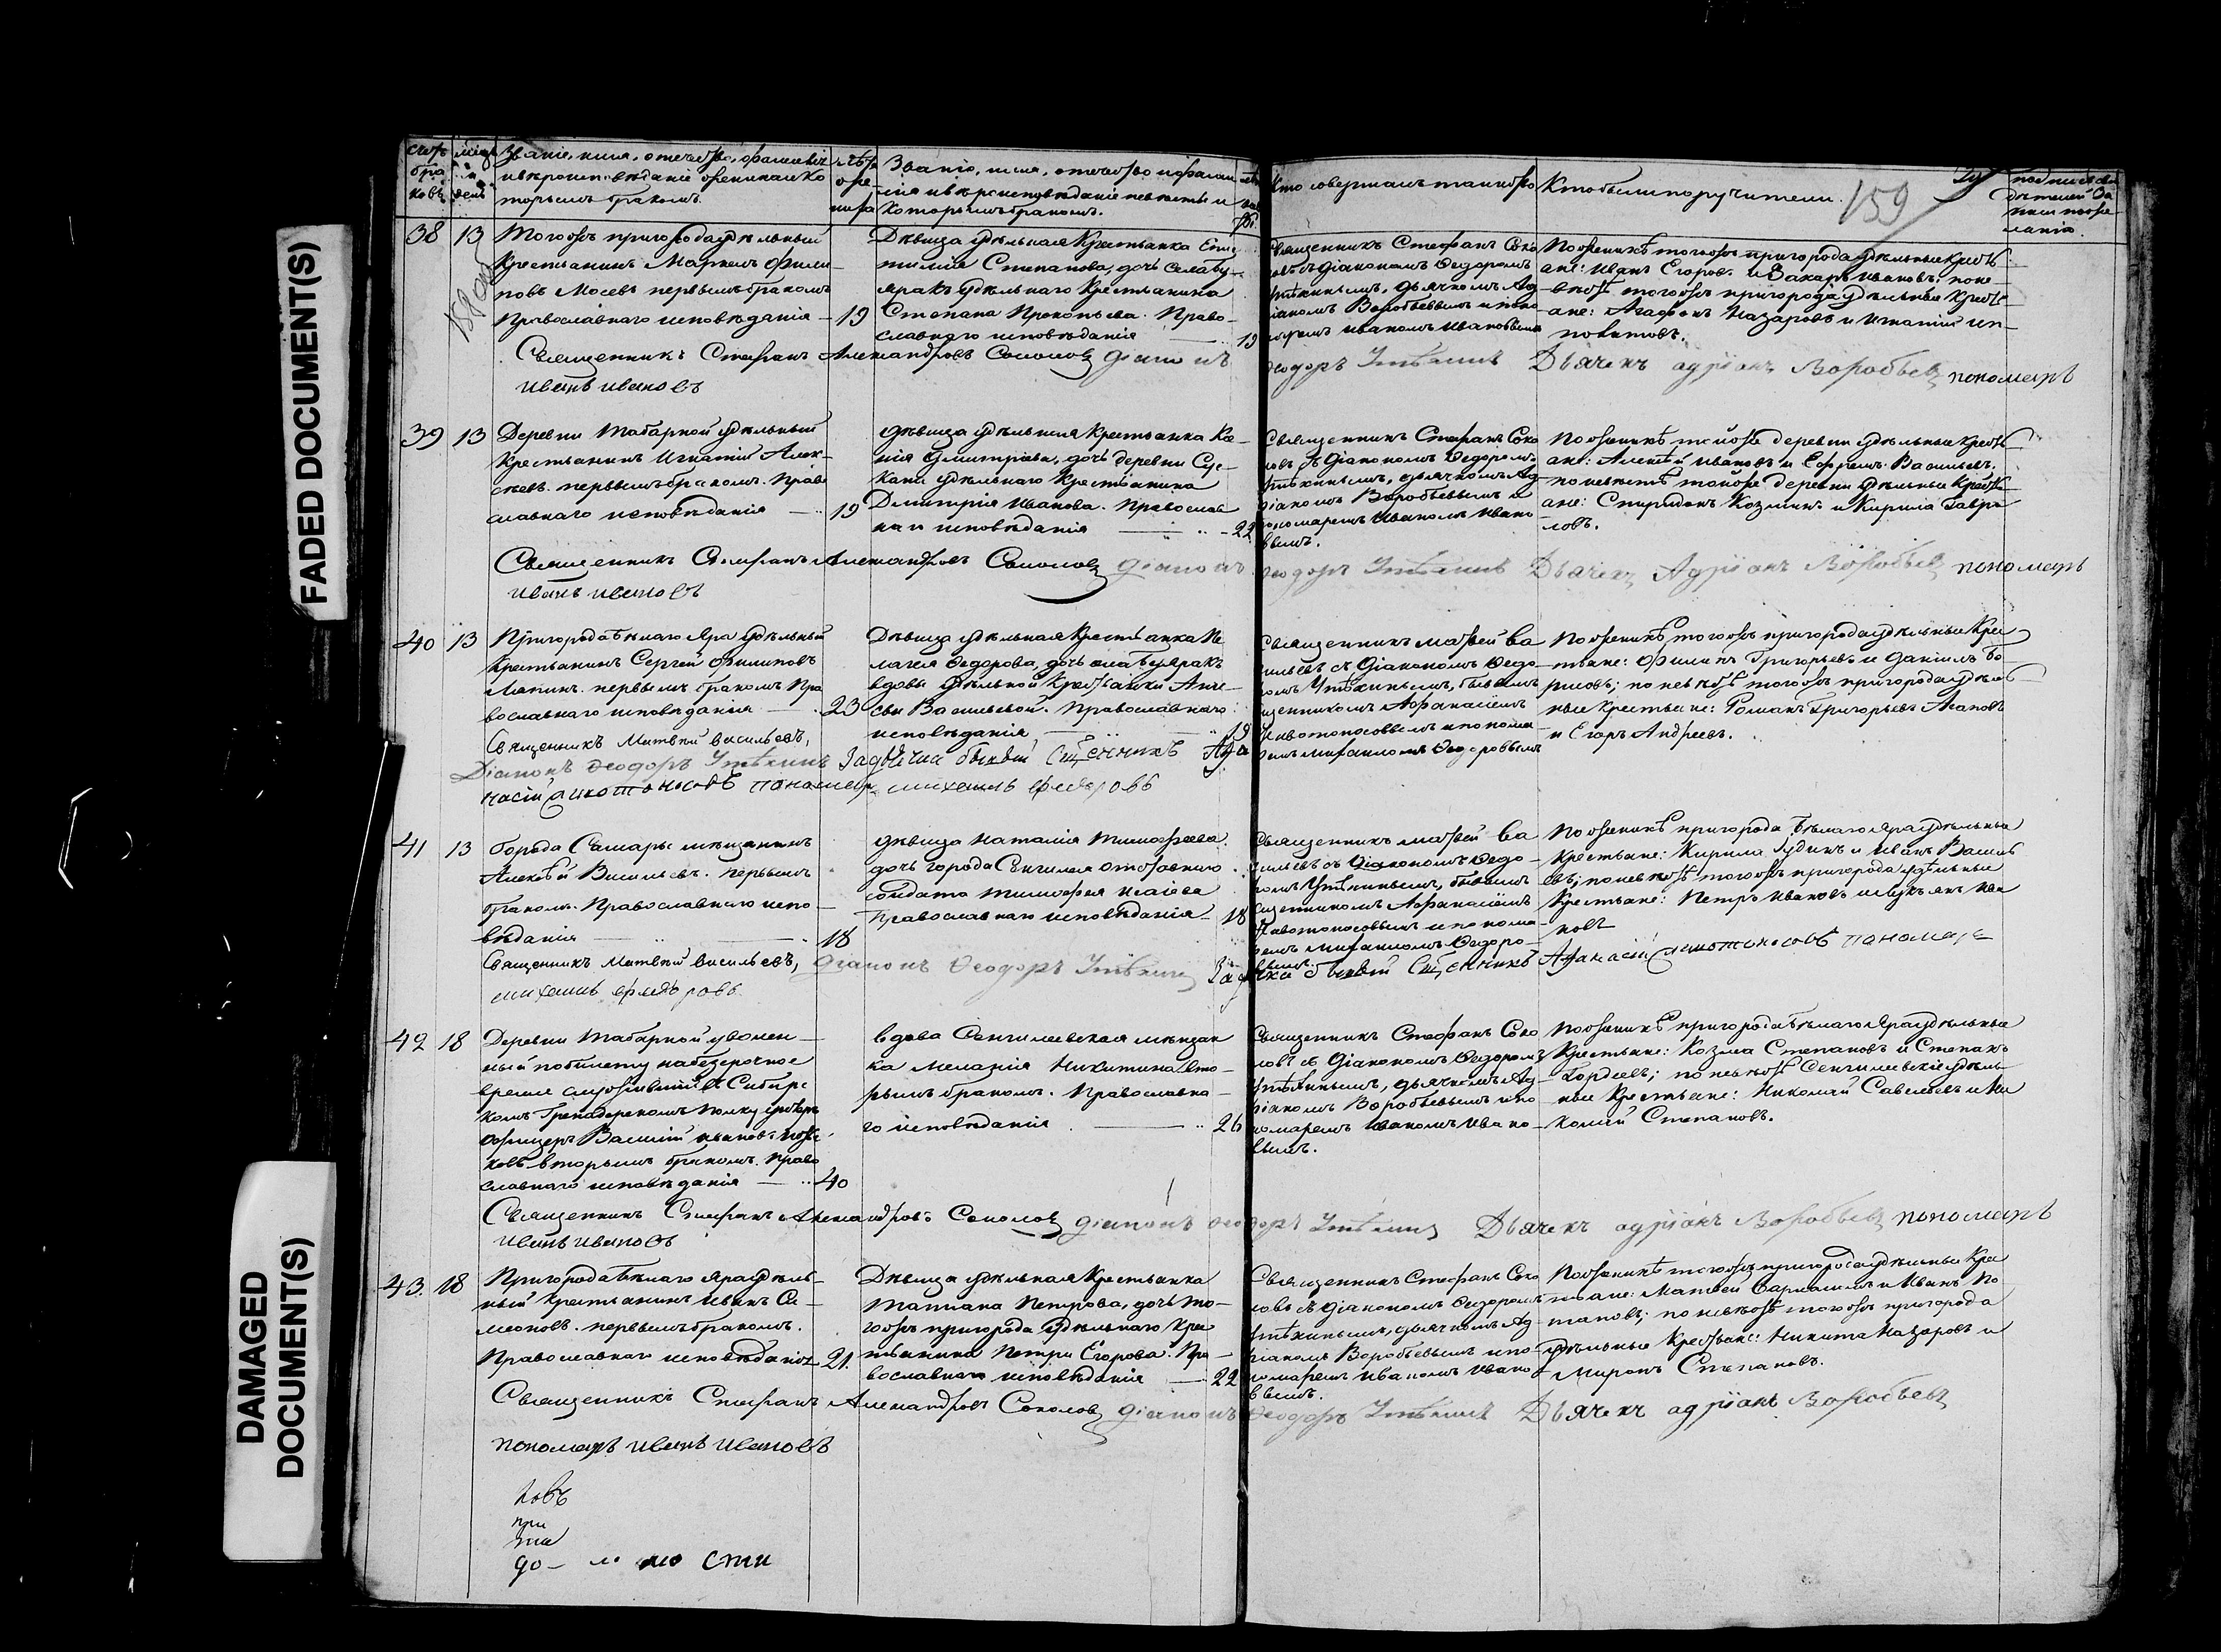 FADED DOCUMENT(S)
DAMAGED
DOCUMENT(S)
счетъ
бра
ковъ
мѣсяц
и
день
Званіе, имя, отечество, фамилія
и вѣроисповѣданіе жениха и ко
торымъ бракомъ.
лѣта
же
ниха
Званіе, имя, отечество и фами
лія и вѣроисповѣданіе невѣсты и
которымъ бракомъ.
Кто совершалъ таинство
Кто были поручители.
159
38
13
Тогожъ пригорода удѣльный
Крестьянинъ Маркелъ Фили
повъ Мосевъ первымъ бракомъ
Православнаго исповѣданія
19
Дѣвица удѣльная Крестьянка
Степанова, дочь села Бу
яракъ удѣльнаго Крестьянина
Степана Прокопьева. Право
славнаго исповѣданія
19
Священникъ Стефанъ Соко
ловъ съ Діакономъ Ѳедоромъ
Утѣхинымъ, дьячкомъ Ад
ріаномъ Воробьевымъ и поно
маремъ Иваномъ Ивановымъ
По женихѣ тогожъ пригорода удѣльные кресть
ане: Иванъ Егоровъ и Захаръ Ивановъ; по не
вѣстѣ тогожъ пригорода удѣльные Кресть
ане: Агафонъ Назаровъ и Игнатій Ип
политовъ.
Священникъ Стефанъ Александровъ Соколовъ Діаконъ Ѳеодоръ Утѣхинъ Дьячекъ Адріанъ Воробьевъ пономарь
Иванъ Ивановъ
39
13
Деревни Табарной удѣльный
Крестьянинъ Игнатій Алек
сѣевъ. первымъ бракомъ. Право
славнаго исповѣданія
19
Дѣвица удѣльная Крестьянка Ксе
нія Дмитріева, дочь деревни Сус
кана удѣльнаго Крестьянина
Дмитрія Иванова. Православ
наго исповѣданія
22
Священникъ Стефанъ Соко
ловъ съ Діакономъ Ѳедоромъ
Утѣхинымъ, дьячкомъ Ад
ріаномъ Воробьевымъ и
пономаремъ Иваномъ Ивано
вымъ.
По женихѣ тойже деревни удѣльные кресть
ане: Алексѣй Ивановъ и Ефремъ Васильевъ.
по невѣстѣ тойже деревни удѣльные Кресть
ане: Спиридонъ Козминъ и Кирила Гаври
ловъ.
Священникъ Стефанъ Александровъ Соколовъ Діаконъ Ѳеодоръ Утѣхинъ Дьячекъ Адріанъ Воробьевъ пономарь
Иванъ Ивановъ
40
13
Пригорода Бѣлаго Яра удѣльный
Крестьянинъ Сергей Филиповъ
первымъ бракомъ Пра
вославнаго исповѣданія
23
Дѣвица удѣльная Крестьянка Пе
лагея Ѳедорова, дочь села Буяракъ
вдовы удѣльной Крестьянки Ани
сьи Васильевой. Православнаго
исповѣданія
19
Священникъ Матвей Ва
сильевъ съ Діакономъ Ѳедо
ромъ Утѣхинымъ, бывшимъ
священникомъ Афанасіемъ
Животоносовымъ и понома
ремъ Михаиломъ Ѳедоровымъ
По женихѣ тогожъ пригорода удѣльные Крес
тьяне: Филипъ Григорьевъ и Даніилъ Бо
рисовъ; по невѣстѣ тогожъ пригорода удѣль
ные крестьяне: Романъ Григорьевъ Агаповъ
и Егоръ Андреевъ.
Священникъ Матвей Васильевъ,
Діаконъ Ѳеодоръ Утѣхинъ За дьячка бывый Сщенникъ Афа
насій Животоносовъ пономарь Михаилъ Федоровъ
41
13
Города Самары мѣщанинъ
Алексѣй Васильевъ. первымъ
бракомъ. Православнаго испо
вѣданія
18
Дѣвица Наталія Тимофеева.
дочь города Сенгилея отставнаго
солдата Тимофея Исаева
Православнаго исповѣданія
18
Священникъ Матвей Ва
сильевъ съ Діакономъ Ѳедо
ромъ Утѣхинымъ, бывшимъ
священникомъ Афанасіемъ
Животоносовымъ и понома
ремъ Михаиломъ Ѳедоро
вымъ.
По женихѣ пригорода Бѣлаго Яра удѣльные
Крестьяне: Кирила Гудинъ и Иванъ Василь
евъ; по невѣстѣ тогожъ пригорода удѣльные
Крестьяне: Петръ Ивановъ и Лукъянъ Ива
новъ
Священникъ Матвей Васильевъ, Діаконъ Ѳеодоръ Утѣхинъ За дьячка бывый Сщенникъ Афанасій Животоносовъ пономарь
Михаилъ Федоровъ
42
18
Деревни Табарной уволен
ный по билету на безсрочное
время служившій въ Сибирс
комъ Гренадерскомъ полку унтеръ
Офицеръ Василій Ивановъ
вторымъ бракомъ. Право
славнаго исповѣданія
40
вдова Сенгилеевская мѣщан
ка Меланія Никитина вто
рымъ бракомъ. Православна
го исповѣданія
26
Священникъ Стефанъ Соко
ловъ съ Діакономъ Ѳедоромъ
Утѣхинымъ, дьячкомъ Ад
ріаномъ Воробьевымъ и по
номаремъ Иваномъ Ивано
вымъ.
По женихѣ пригорода Бѣлаго Яра удѣльные
Крестьяне: Козма Степановъ и Степанъ
Гордеевъ; по невѣстѣ Сенгилеевскіе удѣль
ные Крестьяне: Николай Савельевъ и Ни
колай Степановъ.
Священникъ Стефанъ Александровъ Соколовъ Діаконъ Ѳеодоръ Утѣхинъ Дьячекъ Адріанъ Воробьевъ пономарь
Иванъ Ивановъ
43.
18
Пригорода Бѣлаго Яра удѣль
ный крестьянинъ Иванъ Си
меоновъ. первымъ бракомъ.
Православнаго исповѣданія
21.
Дѣвица удѣльная Крестьянка
Татіана Петрова, дочь то
гожъ пригорода удѣльнаго Кре
стьянина Петра Егорова. Пра
вославнаго исповѣданія
22
Священникъ Стефанъ Соко
ловъ съ Діакономъ Ѳедоромъ
Утѣхинымъ, дьячкомъ Ад
ріаномъ Воробьевымъ и по
номаремъ Иваномъ Ивано
вымъ.
По женихѣ тогожъ пригорода удѣльные Крес
тьяне: Матвей и Иванъ По
таповъ; по невѣстѣ тогожъ пригорода
удѣльные Крестьяне: Никита Назаровъ и
Миронъ Степановъ.
Священникъ Стефанъ Александровъ Соколовъ Діаконъ Ѳеодоръ Утѣхинъ Дьячекъ Адріанъ Воробьевъ
пономарь Иванъ Ивановъ